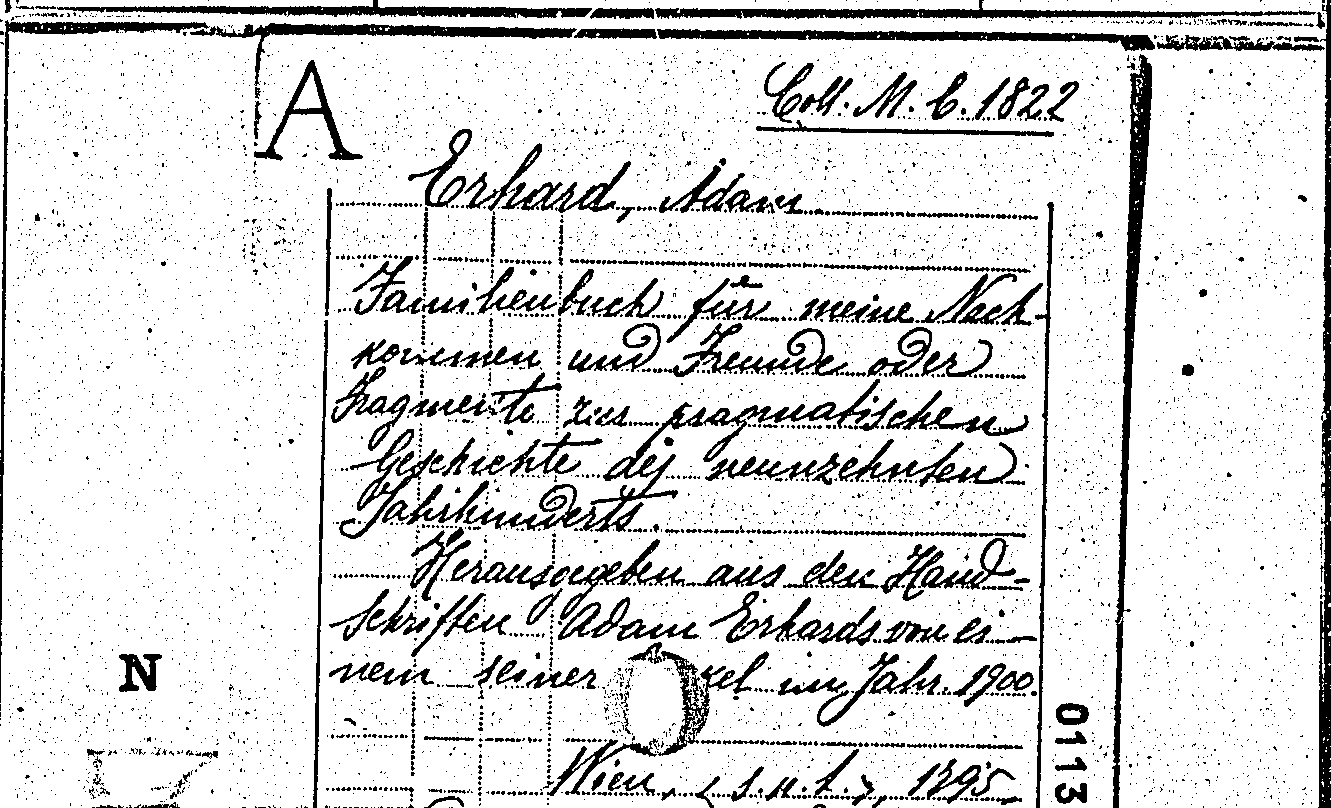 A
Coll. M. C. 1822
Erhard, Adam.
Familienbuch für meine Nach-
kommen und Freunde oder
Fragmente zur pragmatischen
Geschichte des neunzehnten
Jahrhunderts.
Herausgegeben aus den Hand-
schriften Adam Erhards von ei-
nem seiner kel im Jahr. 1900.
N
0113
Wien, < s.n.t. >, 1795